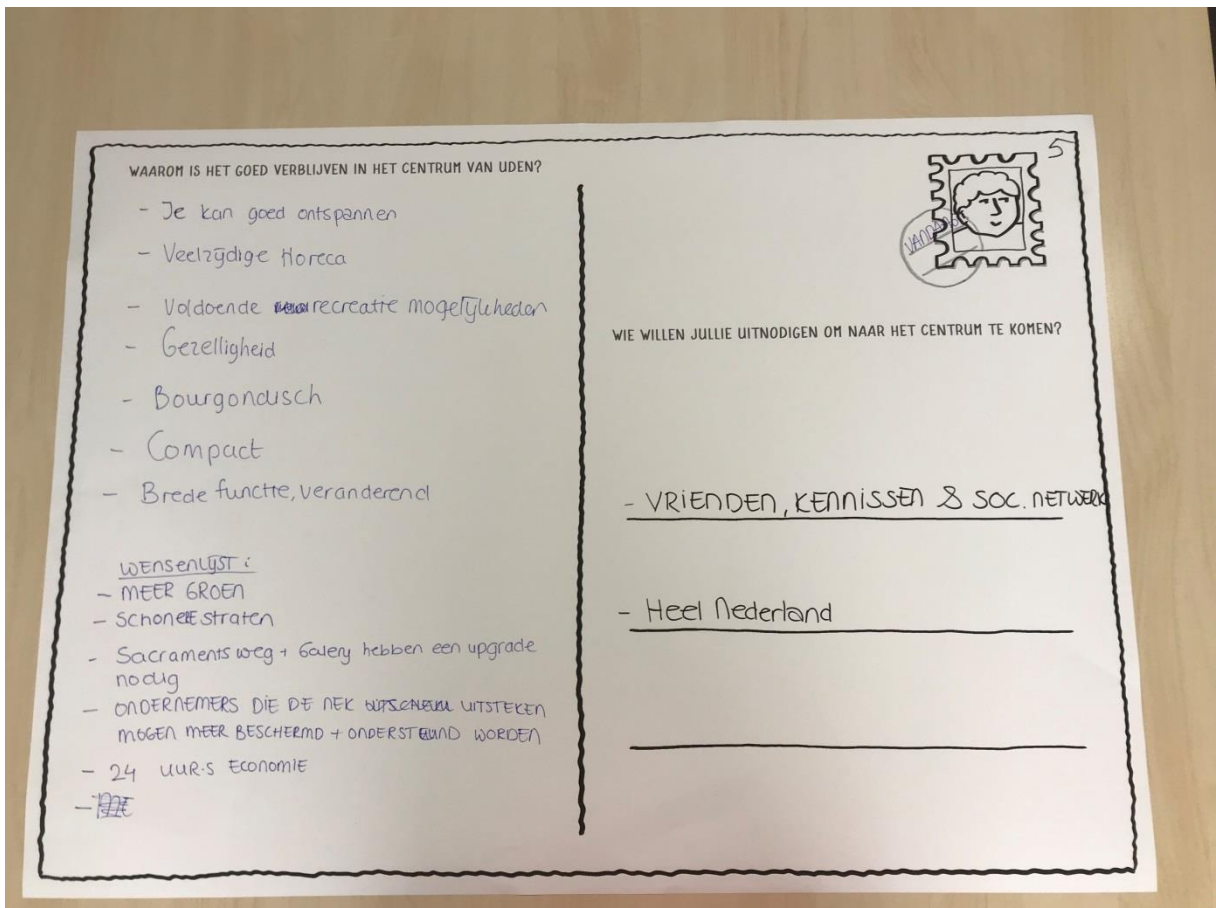 WAAROM IS HET GOED VERBLIJVEN IN HET CENTRUM VAN UDEN?
- Je kan goed ontspannen
- Veelzijdige Horeca
- Voldoende recreatie mogelijkheden
- Gezelligheid
- Bourgondisch
- Compact
- Brede functie, veranderend
WENSENLIJST:
- MEER GROEN
- Schonere straten
- Sacramentsweg + Galery hebben een upgrade
nodig
- ONDERNEMERS DIE DE NEK UITSTEKEN
MOGEN MEER BESCHERMD + ONDERSTEUND WORDEN
- 24 UUR·S ECONOMIE
-
5
WIE WILLEN JULLIE UITNODIGEN OM NAAR HET CENTRUM TE KOMEN?
- VRIENDEN, KENNISSEN & SOC. NETWERK
- Heel Nederland